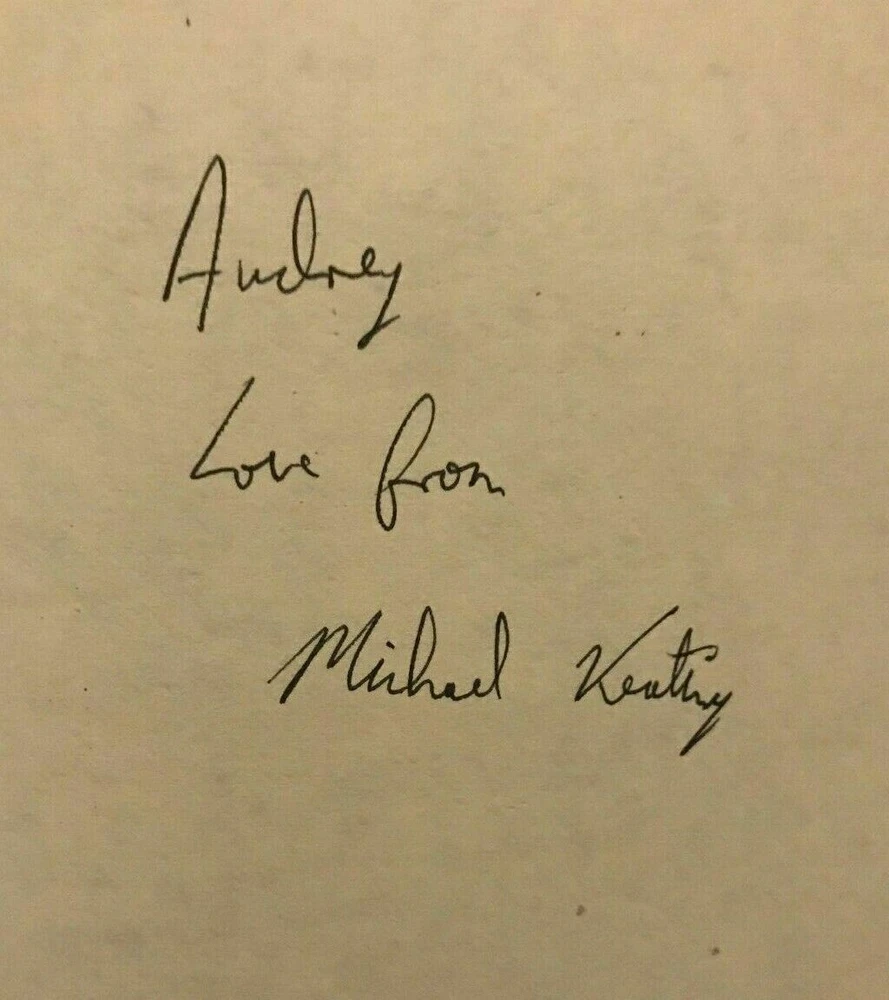 Audrey
Love from
Michael Keating